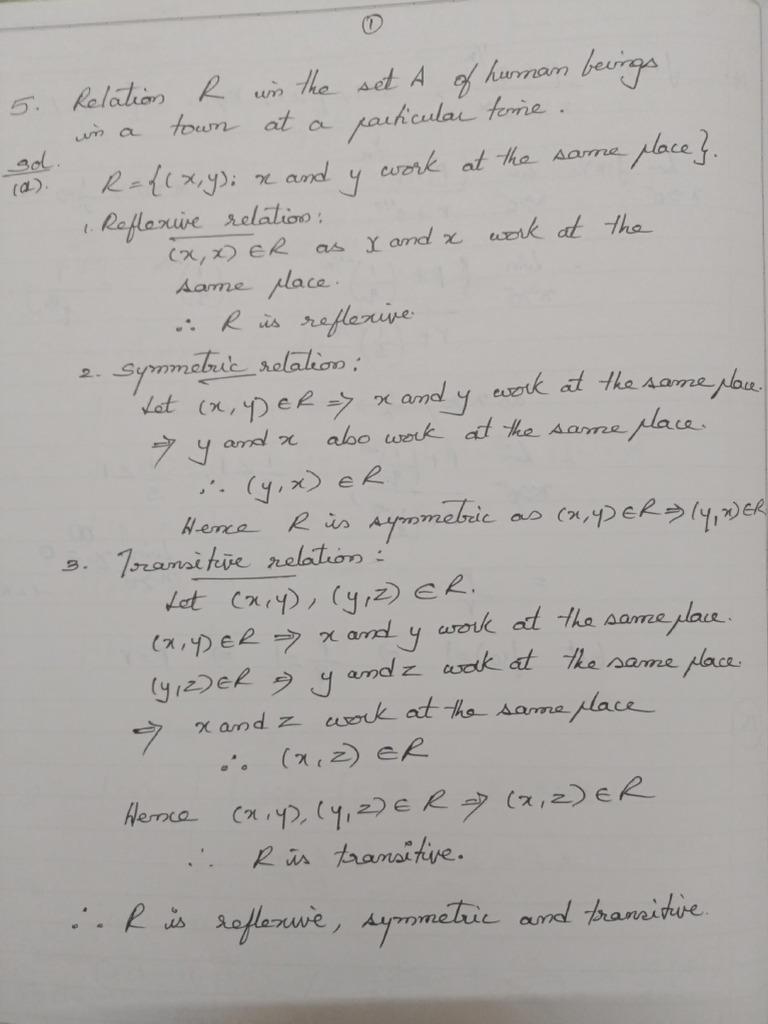 ①
5. Relation R in the set A of human beings
in a town at a particular time.
Sol.
(a). R = {(x,y): x and y work at the same place}.
1. Reflexive relation:
(x,x) ∈ R as x and x work at the
same place.
∴ R is reflexive.
2. Symmetric relation:
Let (x,y) ∈ R ⇒ x and y work at the same place.
⇒ y and x also work at the same place.
∴ (y,x) ∈ R
Hence R is symmetric as (x,y) ∈ R ⇒ (y,x) ∈ R
3. Transitive relation:
Let (x,y), (y,z) ∈ R.
(x,y) ∈ R ⇒ x and y work at the same place.
(y,z) ∈ R ⇒ y and z work at the same place.
⇒ x and z work at the same place
∴ (x,z) ∈ R
Hence (x,y), (y,z) ∈ R ⇒ (x,z) ∈ R
∴ R is transitive.
∴ R is reflexive, symmetric and transitive.